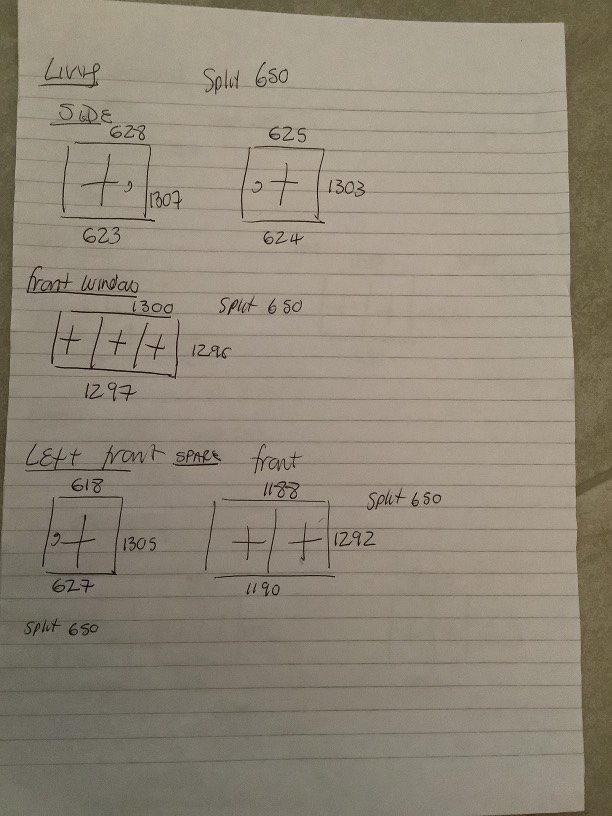 Living Split 650
SIDE
628 625
1307 1303
623 624
front window
1300 Split 650
1296
1297
Left front SPARE front
618 1188 Split 650
1305 1292
627 1190
Split 650